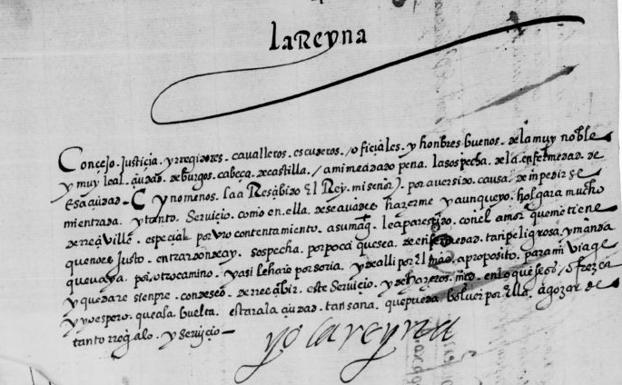 la Reyna
Concejo. Justicia. y rregidores. cavalleros. escuderos. / oficiales. y honbres buenos. de la muy noble
y muy leal. ciudad. de burgos. cabeça. de castilla. / a mi me a dado pena. la sospecha. de la enfermedad de
esa ciudad. - C y no menos. la a Resçibido El Rey. mi señor). por aver sido. causa. de inpedir se
mi entrada. y tanto. Servicio. como en ella. deseavades hazerme y aunque yo. holgara mucho
de rreçiville. especial. por vro contentamiento. a su magt. le a parescido. con el amor que me tiene
que no es Justo. entrar donde ay. sospecha. por poca que sea. de enfermedad. tan peligrosa. y manda
que vaya. por otro camino. y asi le hare por soria. y de alli por El mas. aproposito. para mi viage
y quedare sienpre. con deseo. de rrecibir. este Servicio. y de hazeros. md. en lo que se os / ofrezca
y yo espero. que a la buelta. estara la ciudad. tan sana. que pueda bolver por Ella. a gozar de
tanto rregalo. y servicio—
yo la reyna